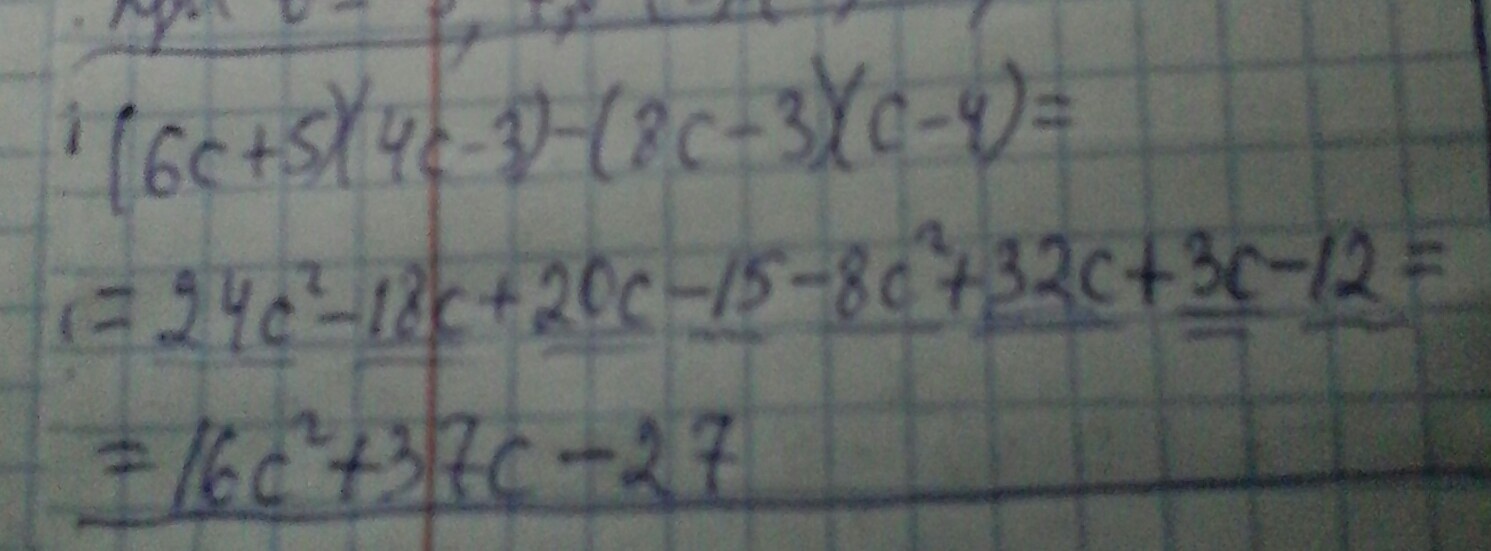 (6c+5)(4c-3)-(8c-3)(c-4)=
=24c²-18c+20c-15-8c²+32c+3c-12=
=16c²+37c-27